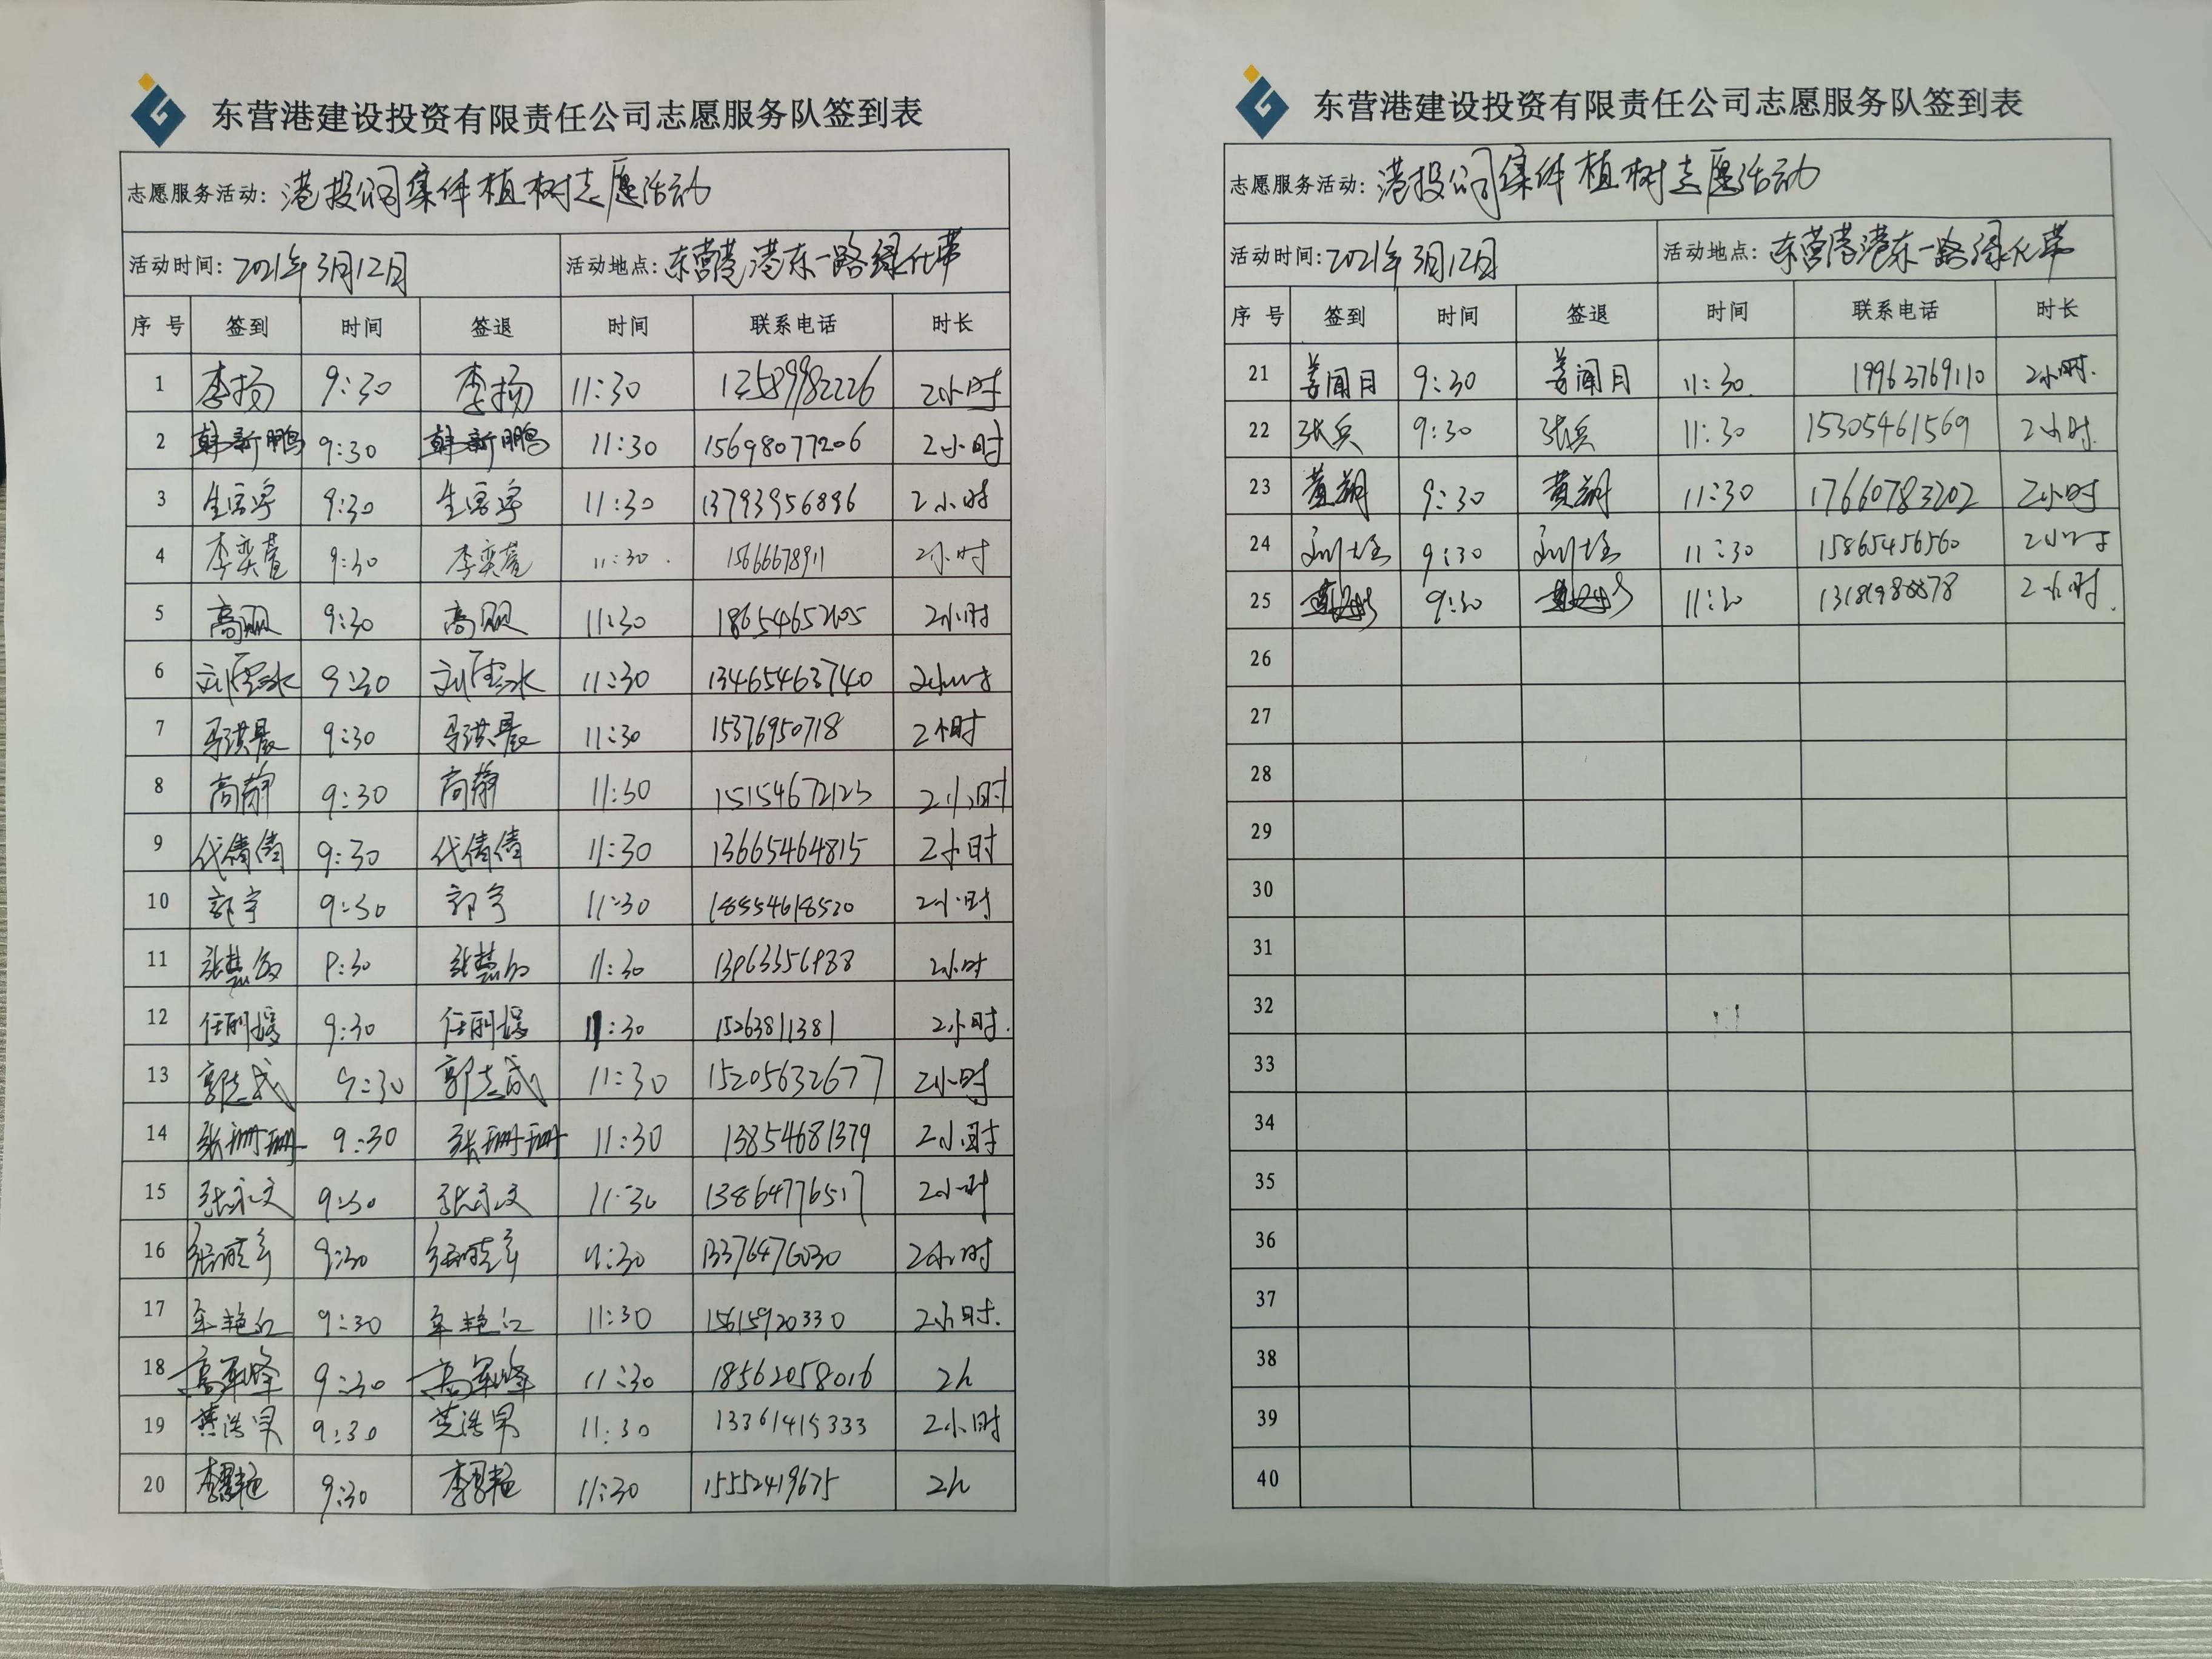 东营港建设投资有限责任公司志愿服务队签到表
志愿服务活动：港投公司集体植树志愿活动
活动时间：2021年3月12日 活动地点：东营港港东一路绿化带
序号 签到 时间 签退 时间 联系电话 时长
1 李扬 9:30 李扬 11:30 13589982226 2小时
2 韩新鹏 9:30 韩新鹏 11:30 15698077206 2小时
3 9:30 11:30 13793956896 2小时
4 李奕萱 9:30 李奕萱 11:30. 15666678911 2小时
5 高丽 9:30 高丽 11:30 18654652605 2小时
6 9:30 11:30 13465463740 2小时
7 马洪晨 9:30 马洪晨 11:30 15376950718 2小时
8 高静 9:30 高静 11:30 15154672123 2小时
9 代倩倩 9:30 代倩倩 11:30 13665464815 2小时
10 郭宇 9:30 郭宇 11:30 18554618520 2小时
11 张慧敏 9:30 张慧敏 11:30 2小时
12 9:30 11:30 15263811381 2小时.
13 郭志成 9:30 郭志成 11:30 15205632677 2小时
14 张珊珊 9:30 张珊珊 11:30 13854681379 2小时
15 张永文 9:30 张永文 11:30 13864776517 2小时
16 9:30 11:30 13376476030 2小时
17 车艳红 9:30 车艳红 11:30 15615920330 2小时.
18 高军峰 9:30 高军峰 11:30 18562058016 2h
19 黄浩男 9:30 黄浩男 11:30 13361415333 2小时
20 9:30 11:30 15552419675 2h
东营港建设投资有限责任公司志愿服务队签到表
志愿服务活动：港投公司集体植树志愿活动
活动时间：2021年3月12日 活动地点：东营港港东一路绿化带
序号 签到 时间 签退 时间 联系电话 时长
21 姜闻月 9:30 姜闻月 11:30. 19963769110 2小时.
22 张兵 9:30 张兵 11:30 15305461569 2小时.
23 黄朔 9:30 黄朔 11:30 17660783202 2小时
24 9:30 11:30 15865456560 2小时
25 9:30 11:30 2小时.
26
27
28
29
30
31
32
33
34
35
36
37
38
39
40